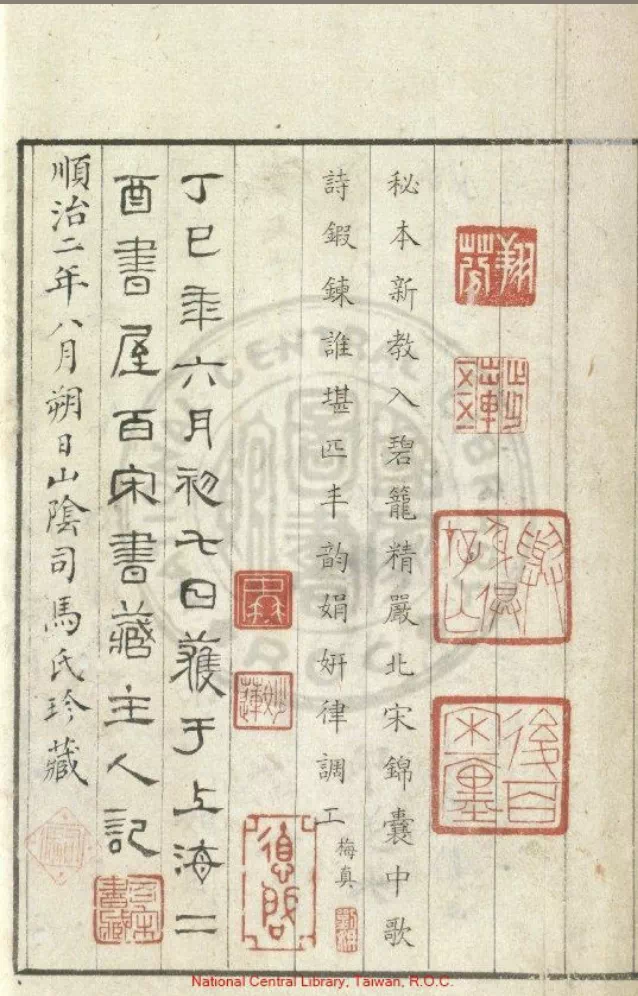 秘本新教入碧籠精嚴北宋錦囊中歌
詩鍜鍊誰堪匹丰韵娟妍律調工
梅真
丁巳年六月初七日獲于上海二
酉書屋百宋書藏主人記
百宋書藏
順治二年八月朔日山陰司馬氏珍藏
後百宋一廛
National Central Library, Taiwan, R.O.C.